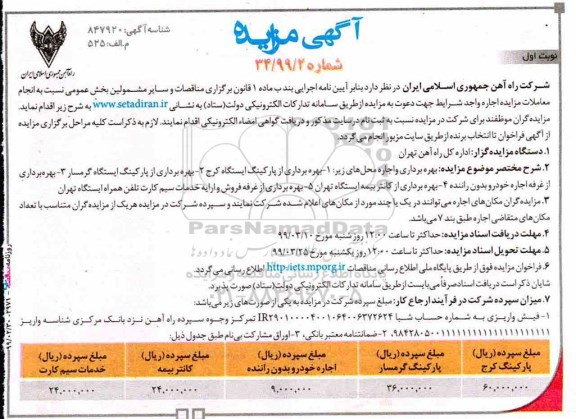 آگهی مزایده
شماره ۳۴/۹۹/۲
شناسه آگهی: ۸۴۷۹۲۰
م.الف: ۵۲۵
راه‌آهن جمهوری اسلامی ایران
نوبت اول
شرکت راه آهن جمهوری اسلامی ایران در نظر دارد بنابر آیین نامه اجرایی بند ب ماده ۱ قانون برگزاری مناقصات و سایر مشمولین بخش عمومی نسبت به انجام
معاملات مزایده اجاره واجد شرایط جهت دعوت به مزایده از طریق سامانه تدارکات الکترونیکی دولت(ستاد) به نشانی www.setadiran.ir به شرح زیر اقدام نماید.
مزایده گران موظفند برای شرکت در مزایده نسبت به ثبت نام در سایت مذکور و دریافت گواهی امضاء الکترونیکی اقدام نمایند. لازم به ذکر است کلیه مراحل برگزاری مزایده
از آگهی فراخوان تا انتخاب برنده از طریق سایت مزبور انجام می‌گردد.
۱. دستگاه مزایده گزار: اداره کل راه آهن تهران
۲. شرح مختصر موضوع مزایده: بهره برداری و اجاره محل‌های زیر: ۱- بهره برداری از پارکینگ ایستگاه کرج ۲- بهره برداری از پارکینگ ایستگاه گرمسار ۳- بهره‌برداری
از غرفه اجاره خودرو بدون راننده ۴- بهره برداری از کانتر بیمه ایستگاه تهران ۵- بهره برداری از غرفه فروش و ارایه خدمات سیم کارت تلفن همراه ایستگاه تهران
۳. مزایده گران مکان‌های اجاره می‌توانند در یک یا چند مورد از مکان‌های اعلام شده شرکت نمایند و سپرده شرکت در مزایده هر یک از مزایده گران متناسب با تعداد
مکان‌های متقاضی اجاره طبق بند ۷ می‌باشد.
۴. مهلت دریافت اسناد مزایده: حداکثر تا ساعت ۱۲:۰۰ روز شنبه مورخ ۹۹/۰۳/۱۰
۵. مهلت تحویل اسناد مزایده: حداکثر تا ساعت ۱۲:۰۰ روز یکشنبه مورخ ۹۹/۰۳/۲۵
۶. فراخوان مزایده فوق از طریق پایگاه ملی اطلاع رسانی مناقصات http://iets.mporg.ir اطلاع رسانی می گردد.
شایان ذکر است دریافت اسناد صرفاً می‌بایست از طریق سامانه تدارکات الکترونیکی دولت(ستاد) صورت پذیرد.
۷. میزان سپرده شرکت در فرآیند ارجاع کار: مبلغ سپرده شرکت در مزایده به یکی از صورت‌های زیر می‌باشد:
۱- فیش واریزی به شماره حساب شبا IR۲۹۰۱۰۰۰۰۴۰۰۱۰۶۴۰۰۶۳۷۲۶۲۴ تمرکز وجوه سپرده راه آهن نزد بانک مرکزی شناسه واریز
۲- ضمانتنامه معتبر بانکی، ۳- اوراق مشارکت بی‌نام طبق جدول ذیل:
مبلغ سپرده (ریال) پارکینگ کرج | مبلغ سپرده (ریال) پارکینگ گرمسار | مبلغ سپرده (ریال) اجاره خودرو بدون راننده | مبلغ سپرده (ریال) کانتر بیمه | مبلغ سپرده (ریال) خدمات سیم کارت
۶۰.۰۰۰.۰۰۰ | ۳۶.۰۰۰.۰۰۰ | ۹.۰۰۰.۰۰۰ | ۲۴.۰۰۰.۰۰۰ | ۲۴.۰۰۰.۰۰۰
ParsNamadData